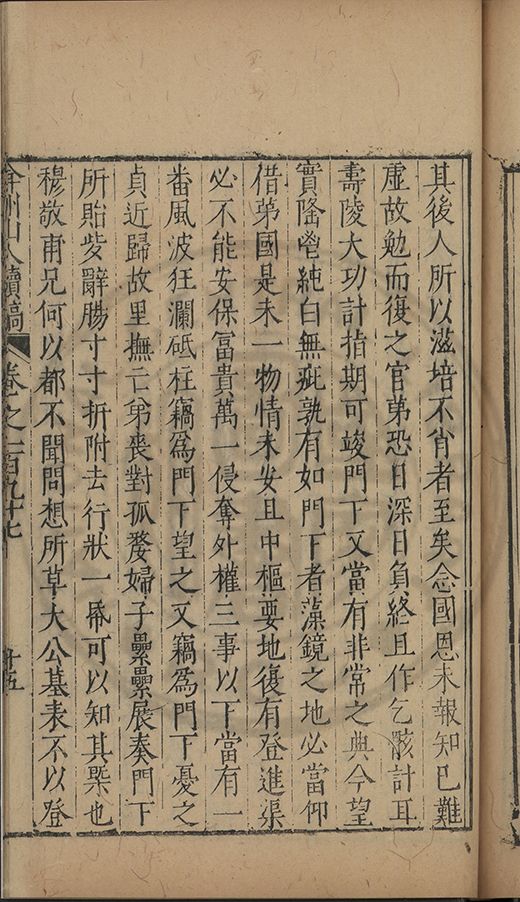 其後人所以滋培不肖者至矣念國恩未報知已難
虛故勉而復之官第恐日深日負終且作乞骸計耳
壽陵大功計指期可竣門下又當有非常之典今望
實隆鬯純白無疵孰有如門下者藻鏡之地必當仰
借第國是未一物情未安且中樞要地復有登進渠
必不能安保冨貴萬一侵奪外權三事以下當有一
畨風波狂瀾砥柱竊爲門下望之又竊爲門下憂之
貞近歸故里撫亡弟喪對孤嫠婦子纍纍展奏門下
所貽訾辭腸寸寸折附去行狀一帋可以知其槩也
穆敬甫兄何以都不聞問想所草大公墓表不以登
弇州山人續稿 卷之一百九十七 十五